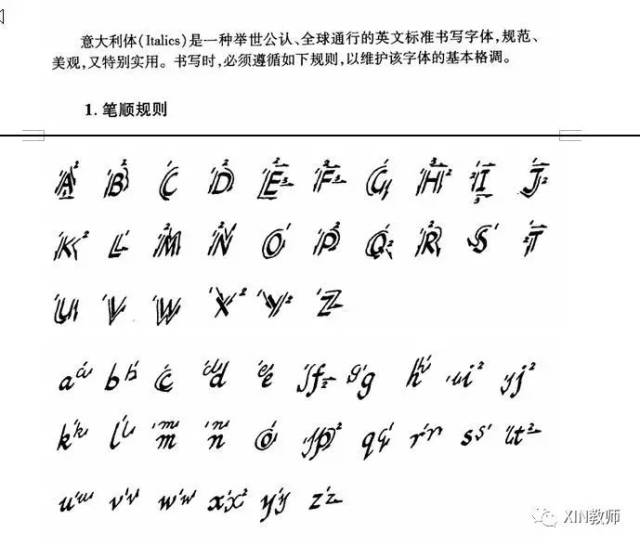 意大利体(Italics)是一种举世公认、全球通行的英文标准书写字体,规范、
美观,又特别实用。书写时,必须遵循如下规则,以维护该字体的基本格调。
1. 笔顺规则
A B C D E F G H I J
K L M N O P Q R S T
U V W X Y Z
a b c d e f g h i j
k l m n o p q r s t
u v w x y z
XIN教师